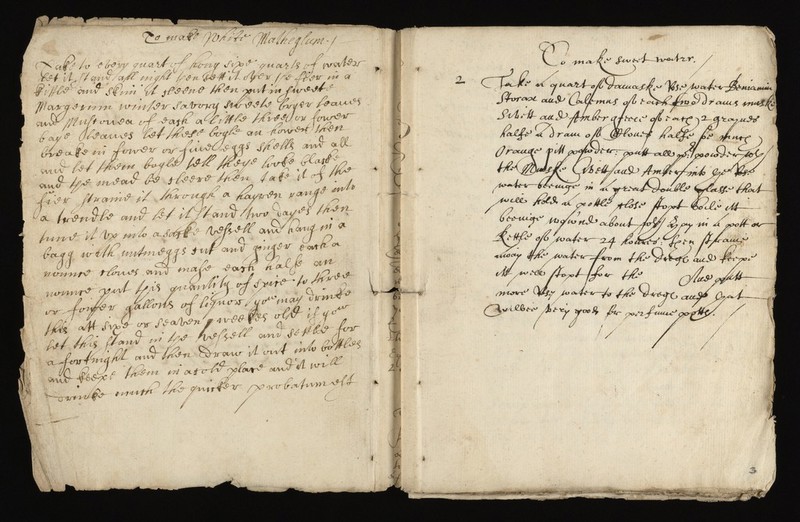 To make White Matheglum
Take to every quart of hony sixe quarts of water
let it stand all night then sett it over the fier in a
kittle and skim it cleene then put in sweete
Margerum winter savory sweete bryer leaves
and of each a little three or fower
baye leaves let these boyle an hower then
breake in fower or five eggs shells and all
and let them boyle tell these looke blacke
and the mead be cleere then take it of the
fier straine it through a hayren range into
a trendle and let it stand two dayes then
tunne it up into a vessell and hang in a
bagg with nutmeggs cut and ginger each a
ounce cloves and mase each halfe an
ounce put this quantity of spice to three
or fower gallons of liquor, you may drinke
this att sixe or seaven weekes old if you
let this stand in the vessell and settle for
a fortnight and then draw it out into bottles
and keepe them in a cold place and it will
drinke much the quicker probatum est
To make sweet water.
2
Take a quart of damaske Rose water Beniamin
Storax and Calamus of each two drams muske
Sivitt and Ambergreece of each 2 graines
halfe a dram of Cloves halfe
Orange pill powder: putt all powder
the Muske Civett and Amber into the Rose
water beeinge in a great double Glasse that
will hold a pottle close stopt boile itt
beeinge about hay in a pott or
kettle of water 24 houres then straine
away the water from the dregs and keepe
itt well stopt for the And putt
more Rose water to the dregs and that
wilbee very good for perfume potts.
3